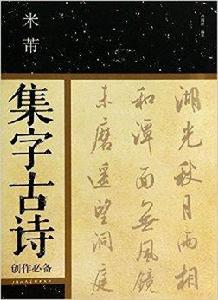 米芾
集字古诗
创作必备
湖光秋月兩相
和潭面無風鏡
未磨遥望洞庭